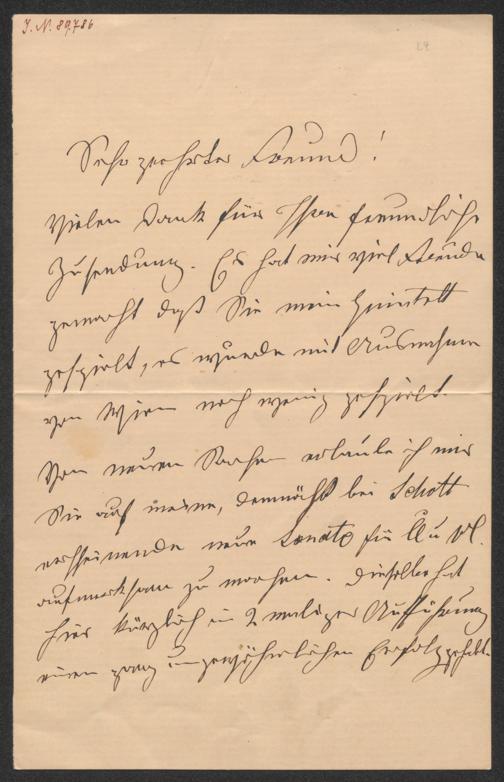 J. N. 89.786
Sehr geehrter Freund!
Vielen Dank für Ihre freundliche
Zusendung. Es hat mir viel Freude
gemacht daß Sie mein Quintett
gespielt, es wurde mit Ausnahme
von Wien noch wenig gespielt.
Von neuen Sachen erlaube ich mir
Sie auf meine, demnächst bei Schott
erscheinende neue Sonate für Cl u Vl.
aufmerksam zu machen. Dieselbe hat
hier kürzlich in 2 maliger Aufführung
einen ganz ungewöhnlichen Erfolg gehabt.